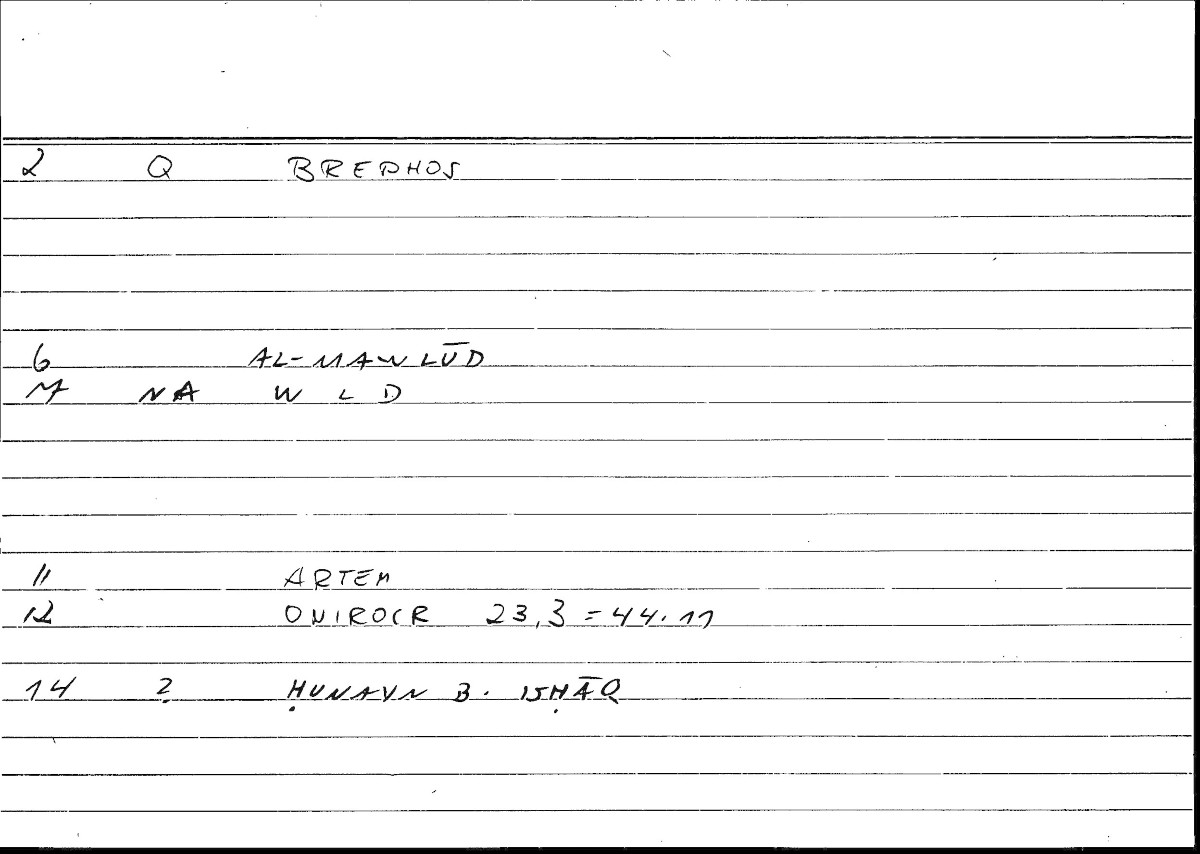 2 Q BREPHOS
6 AL-MAWLŪD
7 NA W L D
11 ARTEM
12 ONIROCR 23,3 = 44.11
14 ? ḤUNAYN B. ISḤĀQ